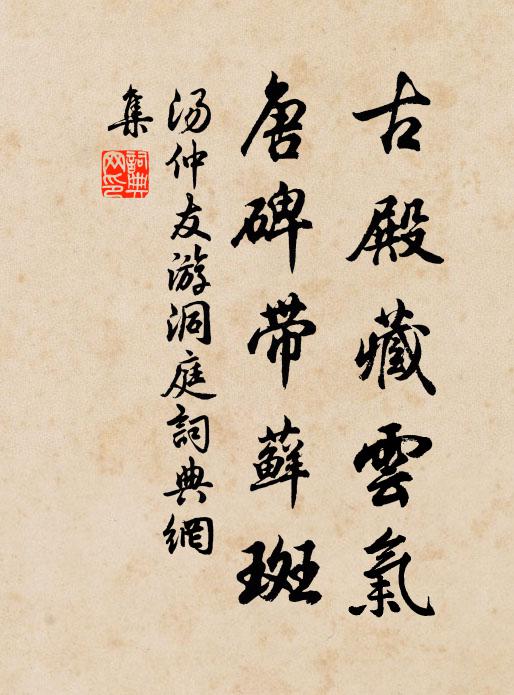 古殿藏雲氣
唐碑带蘚斑
汤仲友游洞庭詞典網
集
詞典網印